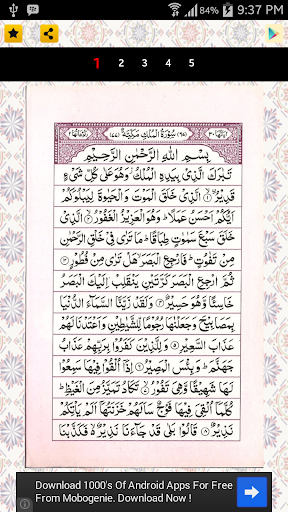 86%
9:37 PM
1 2 3 4 5
سُورَةُ الْمُلْكِ مَكِّيَّةٌ
بِسْمِ اللهِ الرَّحْمٰنِ الرَّحِيْمِ
تَبٰرَكَ الَّذِىْ بِيَدِهِ الْمُلْكُ وَهُوَ عَلٰى كُلِّ شَىْءٍ
قَدِيْرُ ۙ﴿۱﴾ الَّذِىْ خَلَقَ الْمَوْتَ وَالْحَيٰوةَ لِيَبْلُوَكُمْ
اَيُّكُمْ اَحْسَنُ عَمَلًا ؕ وَهُوَ الْعَزِيْزُ الْغَفُوْرُ ۙ﴿۲﴾ الَّذِىْ
خَلَقَ سَبْعَ سَمٰوٰتٍ طِبَاقًا ؕ مَا تَرٰى فِىْ خَلْقِ الرَّحْمٰنِ
مِنْ تَفٰوُتٍ ؕ فَارْجِعِ الْبَصَرَ ۙ هَلْ تَرٰى مِنْ فُطُوْرٍ ﴿۳﴾
ثُمَّ ارْجِعِ الْبَصَرَ كَرَّتَيْنِ يَنْقَلِبْ اِلَيْكَ الْبَصَرُ
خَاسِئًا وَّهُوَ حَسِيْرٌ ﴿۴﴾ وَلَقَدْ زَيَّنَّا السَّمَآءَ الدُّنْيَا
بِمَصَابِيْحَ وَجَعَلْنٰهَا رُجُوْمًا لِّلشَّيٰطِيْنِ وَاَعْتَدْنَا لَهُمْ
عَذَابَ السَّعِيْرِ ﴿۵﴾ وَلِلَّذِيْنَ كَفَرُوْا بِرَبِّهِمْ عَذَابُ
جَهَنَّمَ ؕ وَبِئْسَ الْمَصِيْرُ ﴿۶﴾ اِذَاۤ اُلْقُوْا فِيْهَا سَمِعُوْا
لَهَا شَهِيْقًا وَّهِىَ تَفُوْرُ ۙ﴿۷﴾ تَكَادُ تَمَيَّزُ مِنَ الْغَيْظِ ؕ
كُلَّمَاۤ اُلْقِىَ فِيْهَا فَوْجٌ سَاَلَهُمْ خَزَنَتُهَاۤ اَلَمْ يَاْتِكُمْ
نَذِيْرٌ ﴿۸﴾ قَالُوْا بَلٰى قَدْ جَآءَنَا نَذِيْرٌ ۙ فَكَذَّبْنَا
Download 1000's Of Android Apps For Free
From Mobogenie. Download Now !